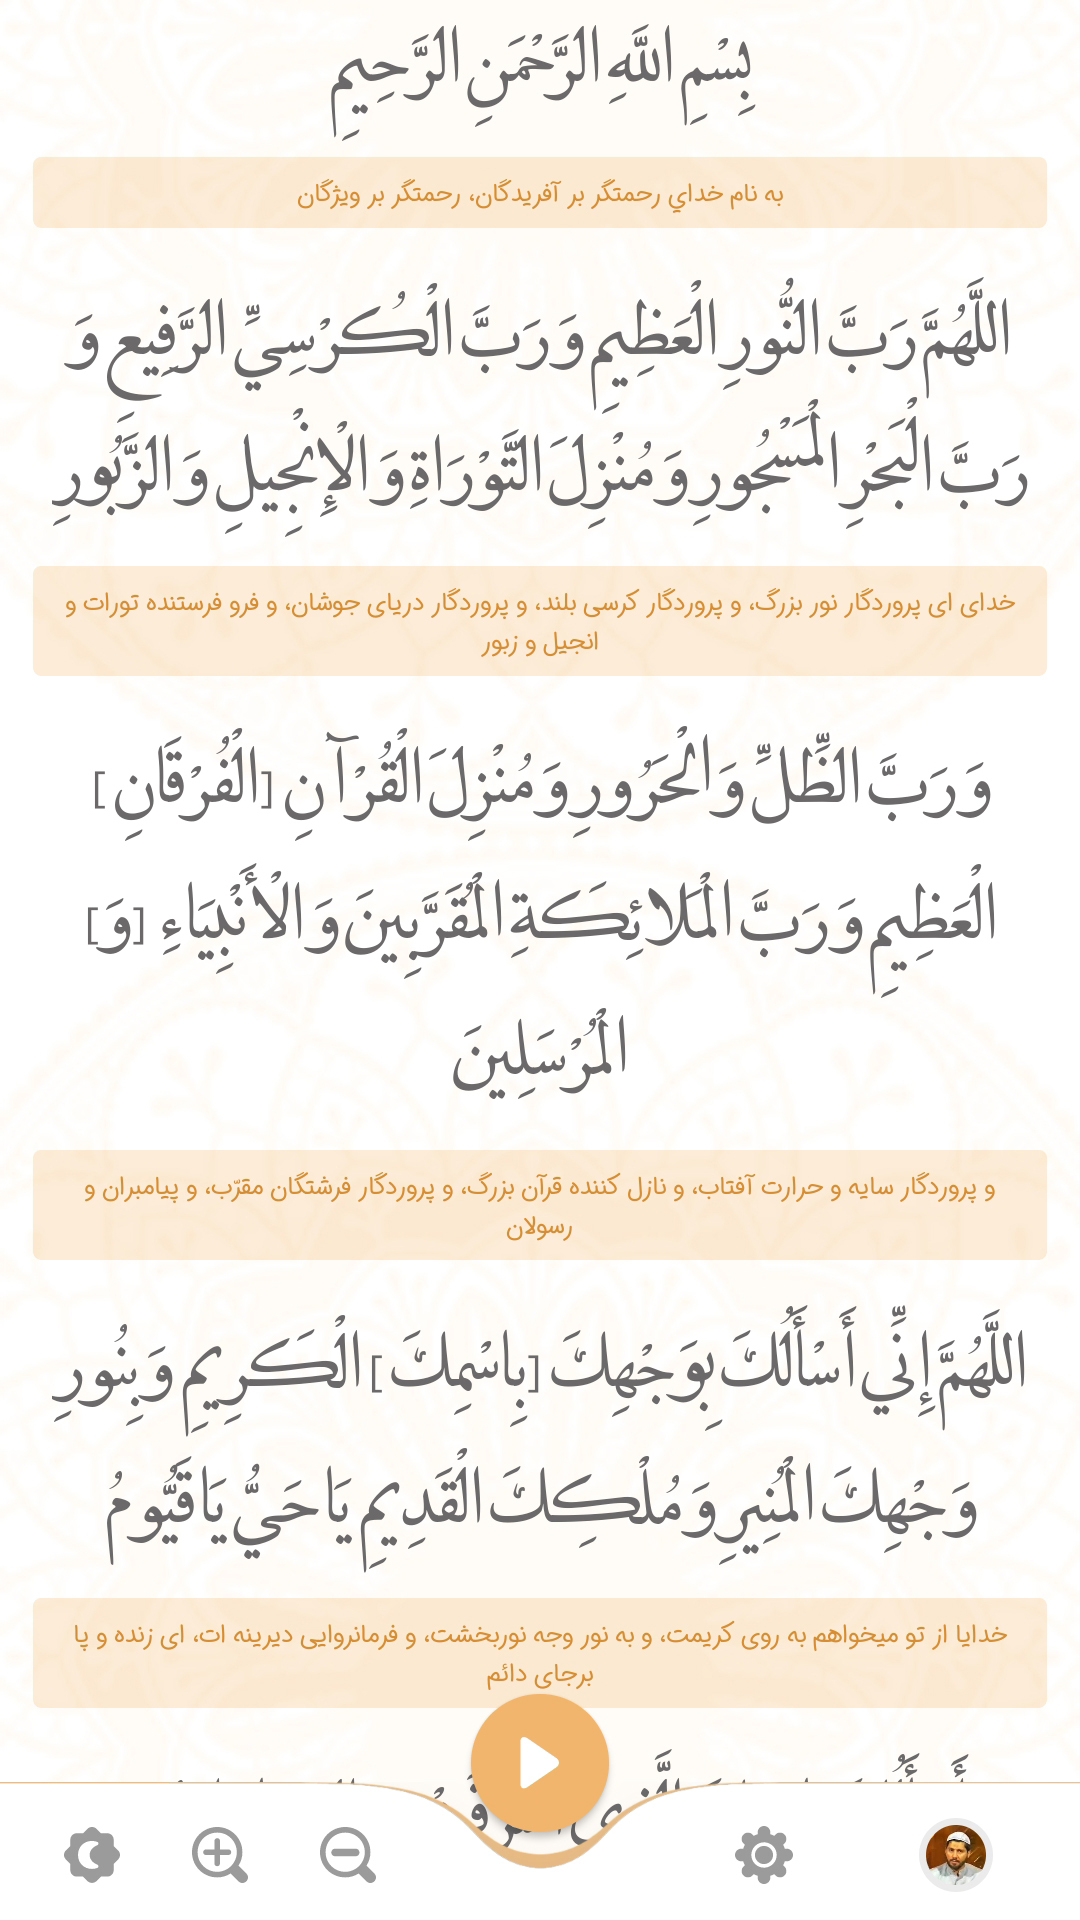 بِسْمِ اللَّهِ الرَّحْمَنِ الرَّحِيمِ
به نام خداي رحمتگر بر آفريدگان، رحمتگر بر ويژگان
اللَّهُمَّ رَبَّ النُّورِ الْعَظِيمِ وَ رَبَّ الْكُرْسِيِّ الرَّفِيعِ وَ
رَبَّ الْبَحْرِ الْمَسْجُورِ وَ مُنْزِلَ التَّوْرَاةِ وَ الْإِنْجِيلِ وَ الزَّبُورِ
خدای ای پروردگار نور بزرگ، و پروردگار کرسی بلند، و پروردگار دریای جوشان، و فرو فرستنده تورات و
انجیل و زبور
وَ رَبَّ الظِّلِّ وَ الْحَرُورِ وَ مُنْزِلَ الْقُرْآنِ [الْفُرْقَانِ]
الْعَظِيمِ وَ رَبَّ الْمَلائِكَةِ الْمُقَرَّبِينَ وَ الْأَنْبِيَاءِ [وَ]
الْمُرْسَلِينَ
و پروردگار سایه و حرارت آفتاب، و نازل کننده قرآن بزرگ، و پروردگار فرشتگان مقرّب، و پیامبران و
رسولان
اللَّهُمَّ إِنِّي أَسْأَلُكَ بِوَجْهِكَ [بِاسْمِكَ] الْكَرِيمِ وَ بِنُورِ
وَجْهِكَ الْمُنِيرِ وَ مُلْكِكَ الْقَدِيمِ يَا حَيُّ يَا قَيُّومُ
خدایا از تو میخواهم به روی کریمت، و به نور وجه نوربخشت، و فرمانروایی دیرینه ات، ای زنده و پا
برجای دائم